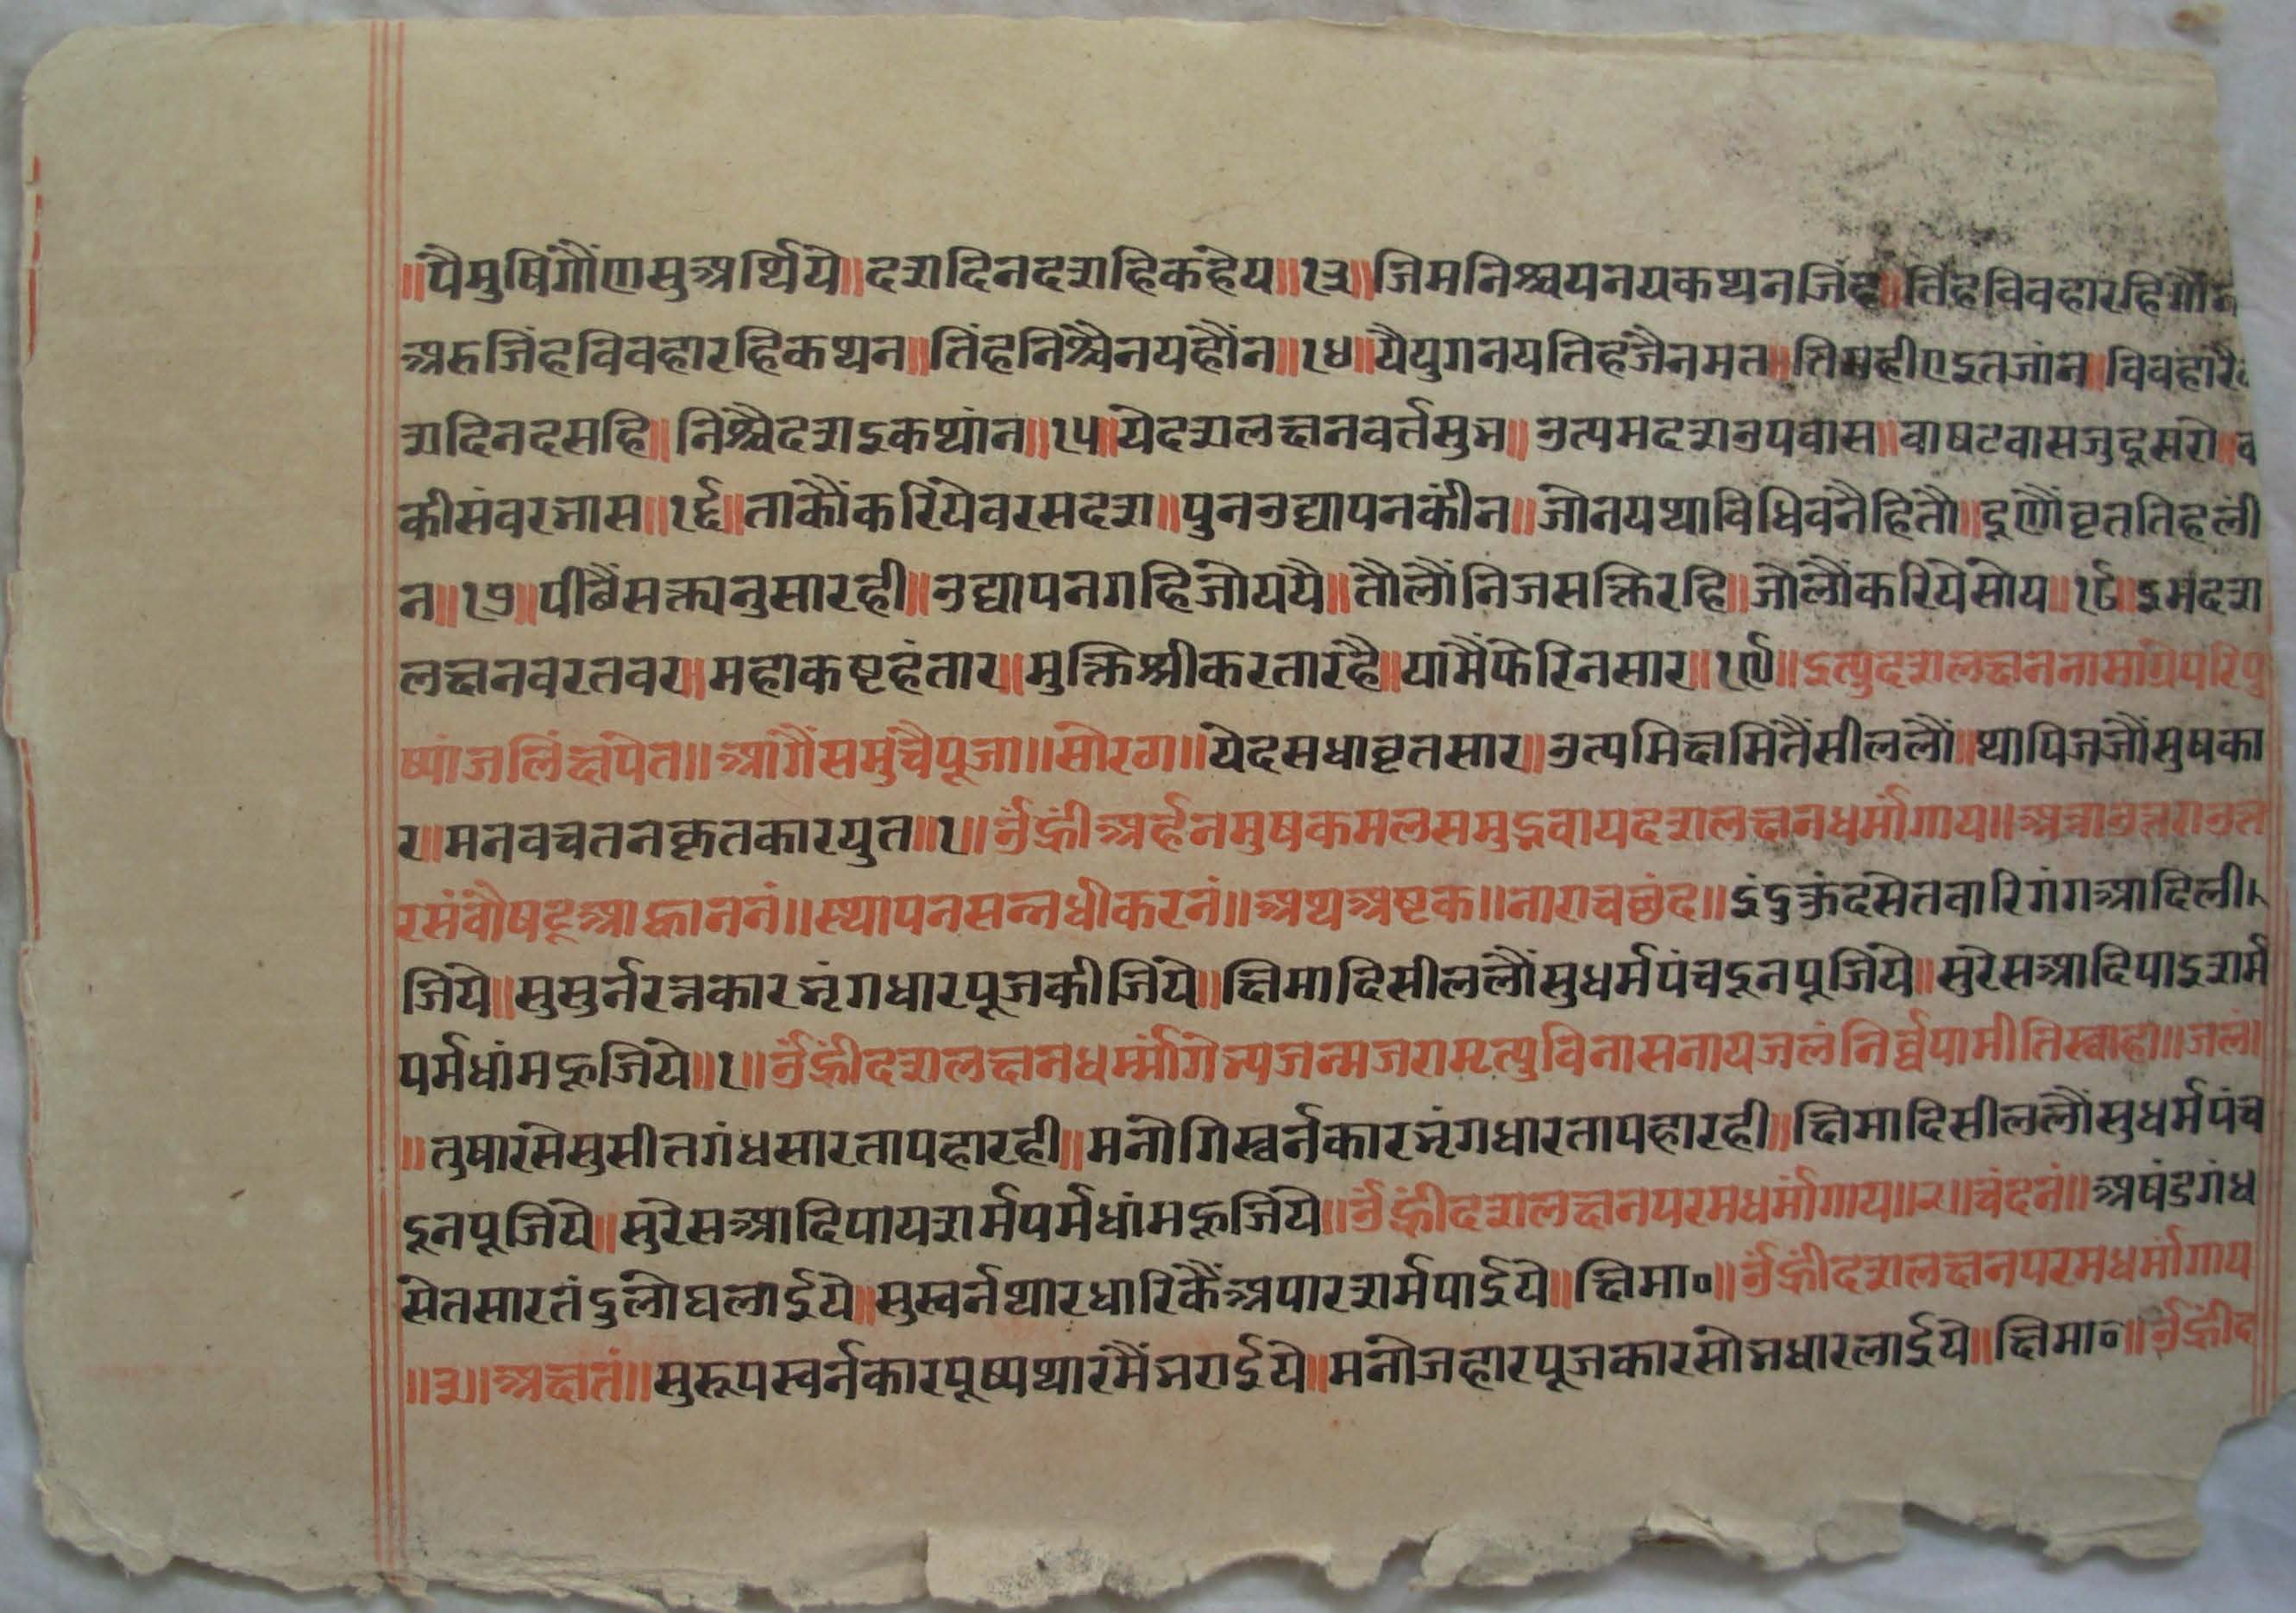 ॥पैमुषिगौंणसुअर्थिये॥दशदिनदशहिकहेय॥१३॥जिमनिश्चयनयकथनजिंह॥तिंहविवहारहिगौंन
अरुजिंहविवहारहिकथन॥तिंहनिश्चैनयहौंन॥१४॥यैयुगनयतिहजैनमत॥तिमहीएइतजांन॥विवहांरै
शदिनदसहि॥निश्चैदशइकथांन॥१५॥येदशलक्षनवर्तसुभ॥उत्यमदशउपवास॥वाषटवासजुदूसरो॥व
कीसंवरभास॥१६॥ताकौंकरियेवरसदश॥पुनउद्यापनकींन॥जोनयथाविधिवनैहितौ॥दूणौंवृततिहलीं
न॥१७॥पीबैंसक्त्यनुसारही॥उद्यापनगहिजोययै॥तौलौंनिजसक्तिरहि॥जौलौंकरियेसोय॥१८॥इमदश
लक्षनवरतवर॥महाकष्टहंतार॥मुक्तिश्रीकरतारहै॥यामैंफेरिनसार॥१९॥इत्युदशलक्षननामाग्रेपरिपु
ष्पांजलिंक्षपेत॥आगैंसमुंचैपूजा॥सोरठा॥येदसधावृतसार॥उत्यमिक्षमितैंसीललौं॥थापिजजौंसुषका
र॥मनवचतनकृतकारयुत॥१॥ॐह्रींअर्हनमुषकमलसमुद्भवायदशलक्षनधर्मांगाय॥अत्राउतराउत
रसंवौषट्आह्वाननं॥स्थापनसन्नधीकरनं॥अथअष्टक॥नाराचछंद॥इंदुकुंदसेतवारिगंगआदिली
जिये॥सुसुर्नरत्नकारभृंगधारपूजकीजिये॥क्षिमादिसीललौंसुधर्मपंचदूनपूजिये॥सुरेसआदिपाइशर्म
पर्मधांमहूजिये॥१॥ॐह्रींदशलक्षनधर्म्मांगेभ्यजन्मजरामृत्युविनासनायजलंनिर्व्वपामीतिस्वाहा॥जलं।
॥तुषारसेसुसीतगंधसारतापहारही॥मनोगिस्वर्नकारभृंगधारतापहारही॥क्षिमादिसीललौंसुधर्मपंच
दूनपूजिये॥सुरेसआदिपायशर्मपर्मधांमहूजिये॥ॐह्रींदशलक्षनपरमधर्मांगाय॥२॥चंदनं॥अषंडगंध
सेतसारतंदुलोघलाईये॥सुस्वर्नथारधारिकैंअपारशर्मपाईये॥क्षिमा०॥ॐह्रींदशलक्षनपरमधर्मांगाय
॥३॥अक्षतं॥सुरूपस्वर्नकारपूष्पथारमैंभराईये॥मनोजहारपूजकारसोभधारलाईये॥क्षिमा०॥ॐह्रींद